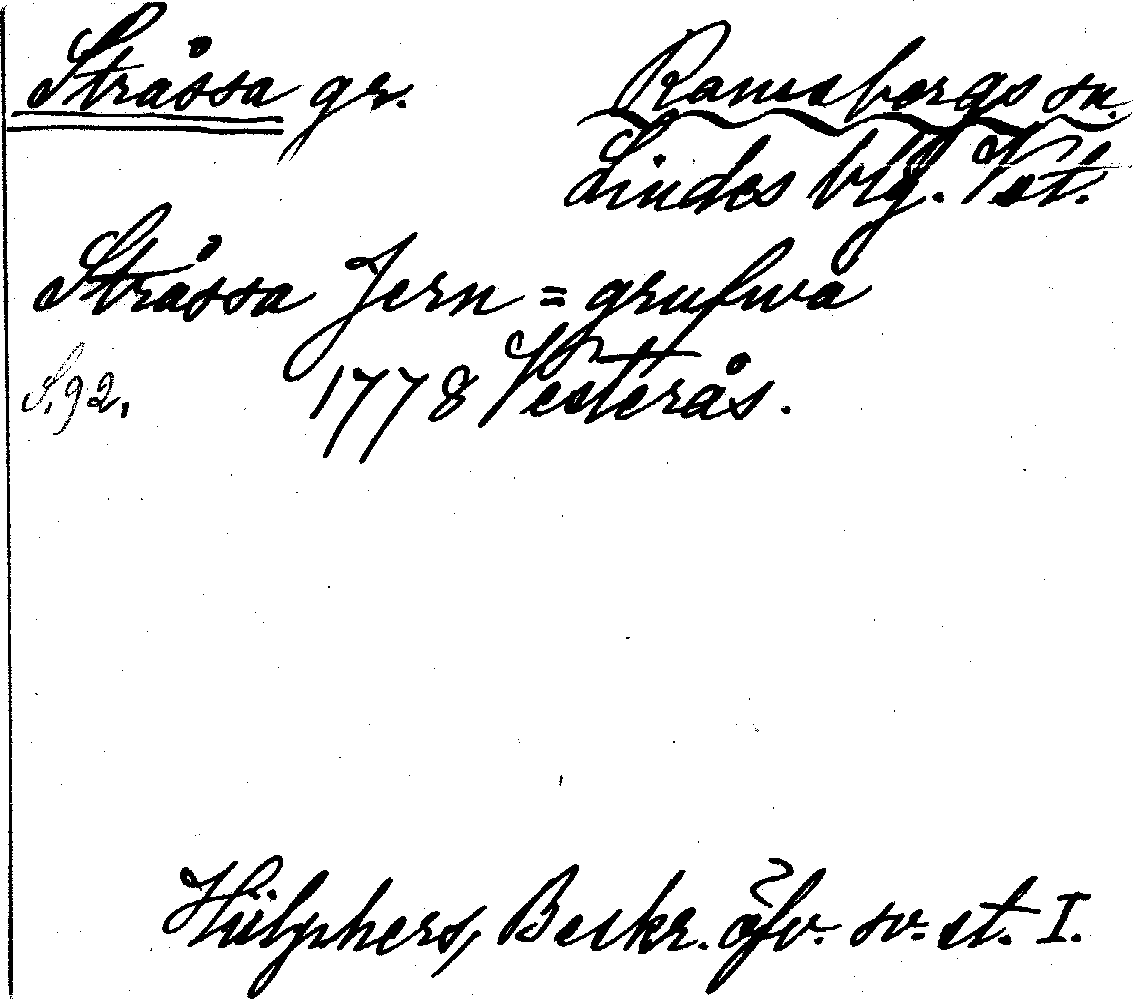 Stråssa gr. Ramsbergs sn.
Lindes blg. Vst.
Stråssa Jern=grufwa
S. 92. 1778 Vesterås.
Hülphers, Beskr. öfv. sv. st. I.